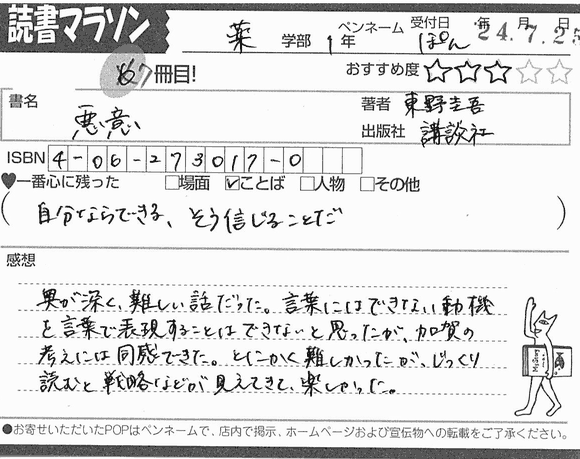 読書マラソン
薬 学部 1年 ペンネーム ぽん 受付日 24.年7.月2 日
7冊目! おすすめ度 ★★★☆☆
書名 悪意
著者 東野圭吾
出版社 講談社
ISBN 4-06-273017-0
♥一番心に残った □場面 ☑ことば □人物 □その他
(自分ならできる、そう信じることだ)
感想
奥が深く、難しい話だった。言葉にはできない動機
を言葉で表現することはできないと思ったが、加賀の
考えには同感できた。とにかく難しかったが、じっくり
読むと戦略などが見えてきて、楽しかった。
●お寄せいただいたPOPはペンネームで、店内で掲示、ホームページおよび宣伝物への転載をご了承ください。